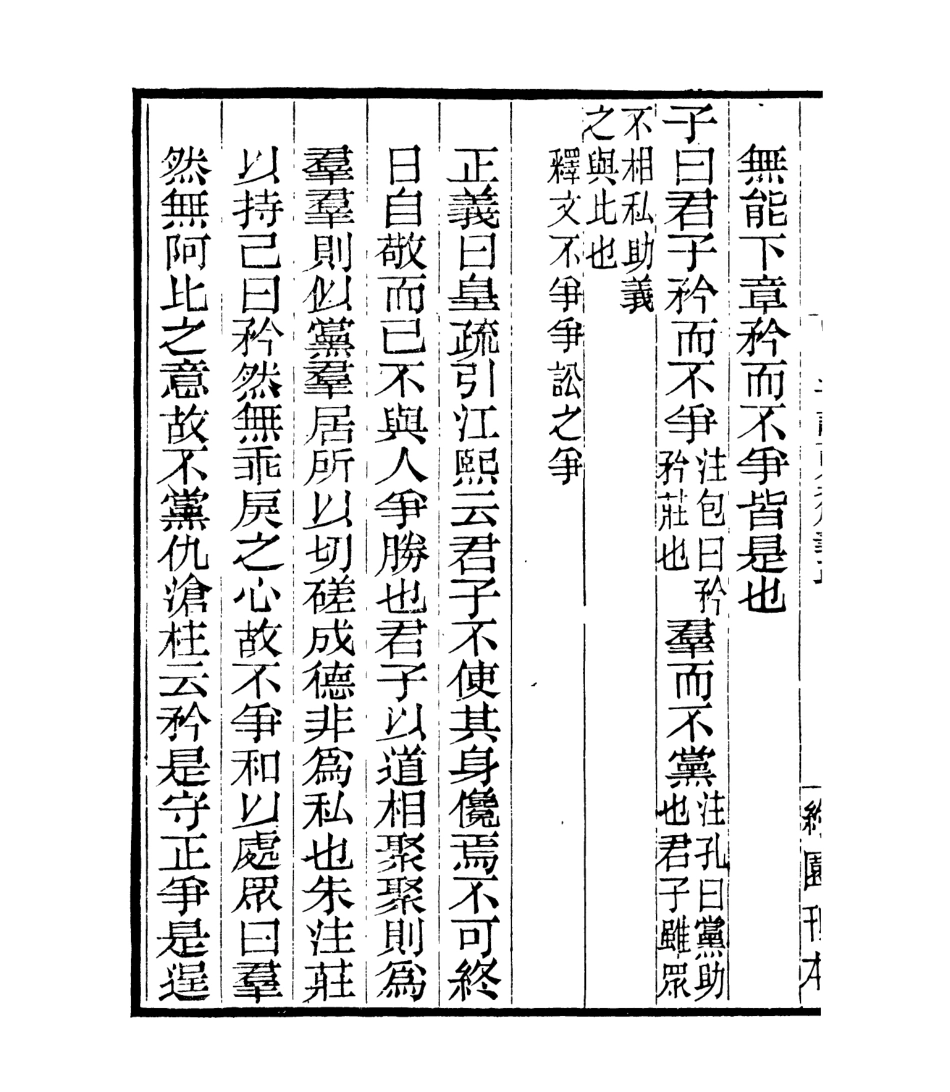 無能下章矜而不爭皆是也
子曰君子矜而不爭注包曰矜矜莊也羣而不黨注孔曰黨助也君子雖眾
不相私助義之與此也
釋文不爭爭訟之爭
正義曰皇疏引江熙云君子不使其身儳焉不可終
日自敬而已不與人爭勝也君子以道相聚聚則為
羣羣則似黨羣居所以切磋成德非為私也朱注莊
以持己曰矜然無乖戾之心故不爭和以處眾曰羣
然無阿比之意故不黨仇滄柱云矜是守正爭是逞
園刊本